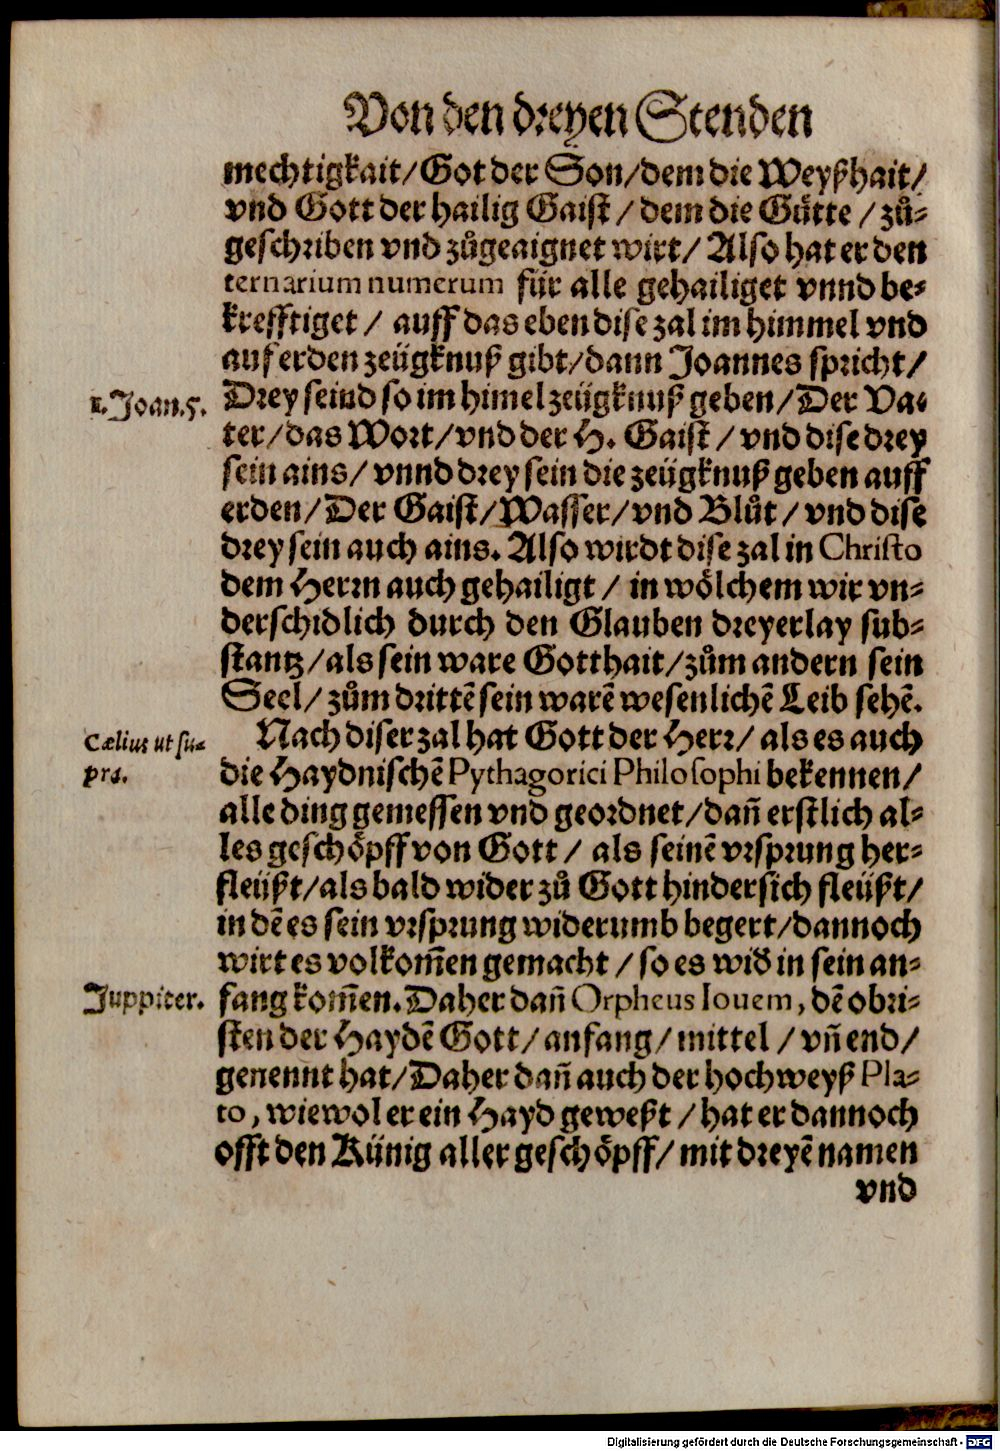 Von den dreyen Stenden
mechtigkait/ Got der Son/ dem die Weyßhait/
vnd Gott der hailig Gaist / dem die Gütte / zů-
geschriben vnd zůgeaignet wirt/ Also hat er den
ternarium numerum für alle gehailiget vnnd be-
krefftiget / auff das eben dise zal im himmel vnd
auf erden zeügknuß gibt/ dann Joannes spricht/
1. Joan. 5.
Drey seind so im himel zeügknuß geben/ Der Va-
ter/ das Wort/ vnd der H. Gaist / vnd dise drey
sein ains/ vnnd drey sein die zeügknuß geben auff
erden/ Der Gaist/ Wasser/ vnd Blůt / vnd dise
drey sein auch ains. Also wirdt dise zal in Christo
dem Herrn auch gehailigt / in wölchem wir vn-
derschidlich durch den Glauben dreyerlay sub-
stantz/ als sein ware Gotthait/ zům andern sein
Seel/ zům drittē sein warē wesenlichē Leib sehē.
Cælius ut su-
pra.
Nach diser zal hat Gott der Herr/ als es auch
die Haydnischē Pythagorici Philosophi bekennen/
alle ding gemessen vnd geordnet/ dañ erstlich al-
les geschöpff von Gott / als seinē vrsprung her-
fleüßt/ als bald wider zů Gott hindersich fleüßt/
in dē es sein vrsprung widerumb begert/ dannoch
wirt es volkom̄en gemacht / so es wid̄ in sein an-
Juppiter.
fang kom̄en. Daher dañ Orpheus Iouem, dē obri-
sten der Haydē Gott/ anfang/ mittel / vñ end/
genennt hat/ Daher dañ auch der hochweyß Pla-
to, wiewol er ein Hayd geweßt / hat er dannoch
offt den Künig aller geschöpff/ mit dreyē namen
vnd
Digitalisierung gefördert durch die Deutsche Forschungsgemeinschaft - DFG